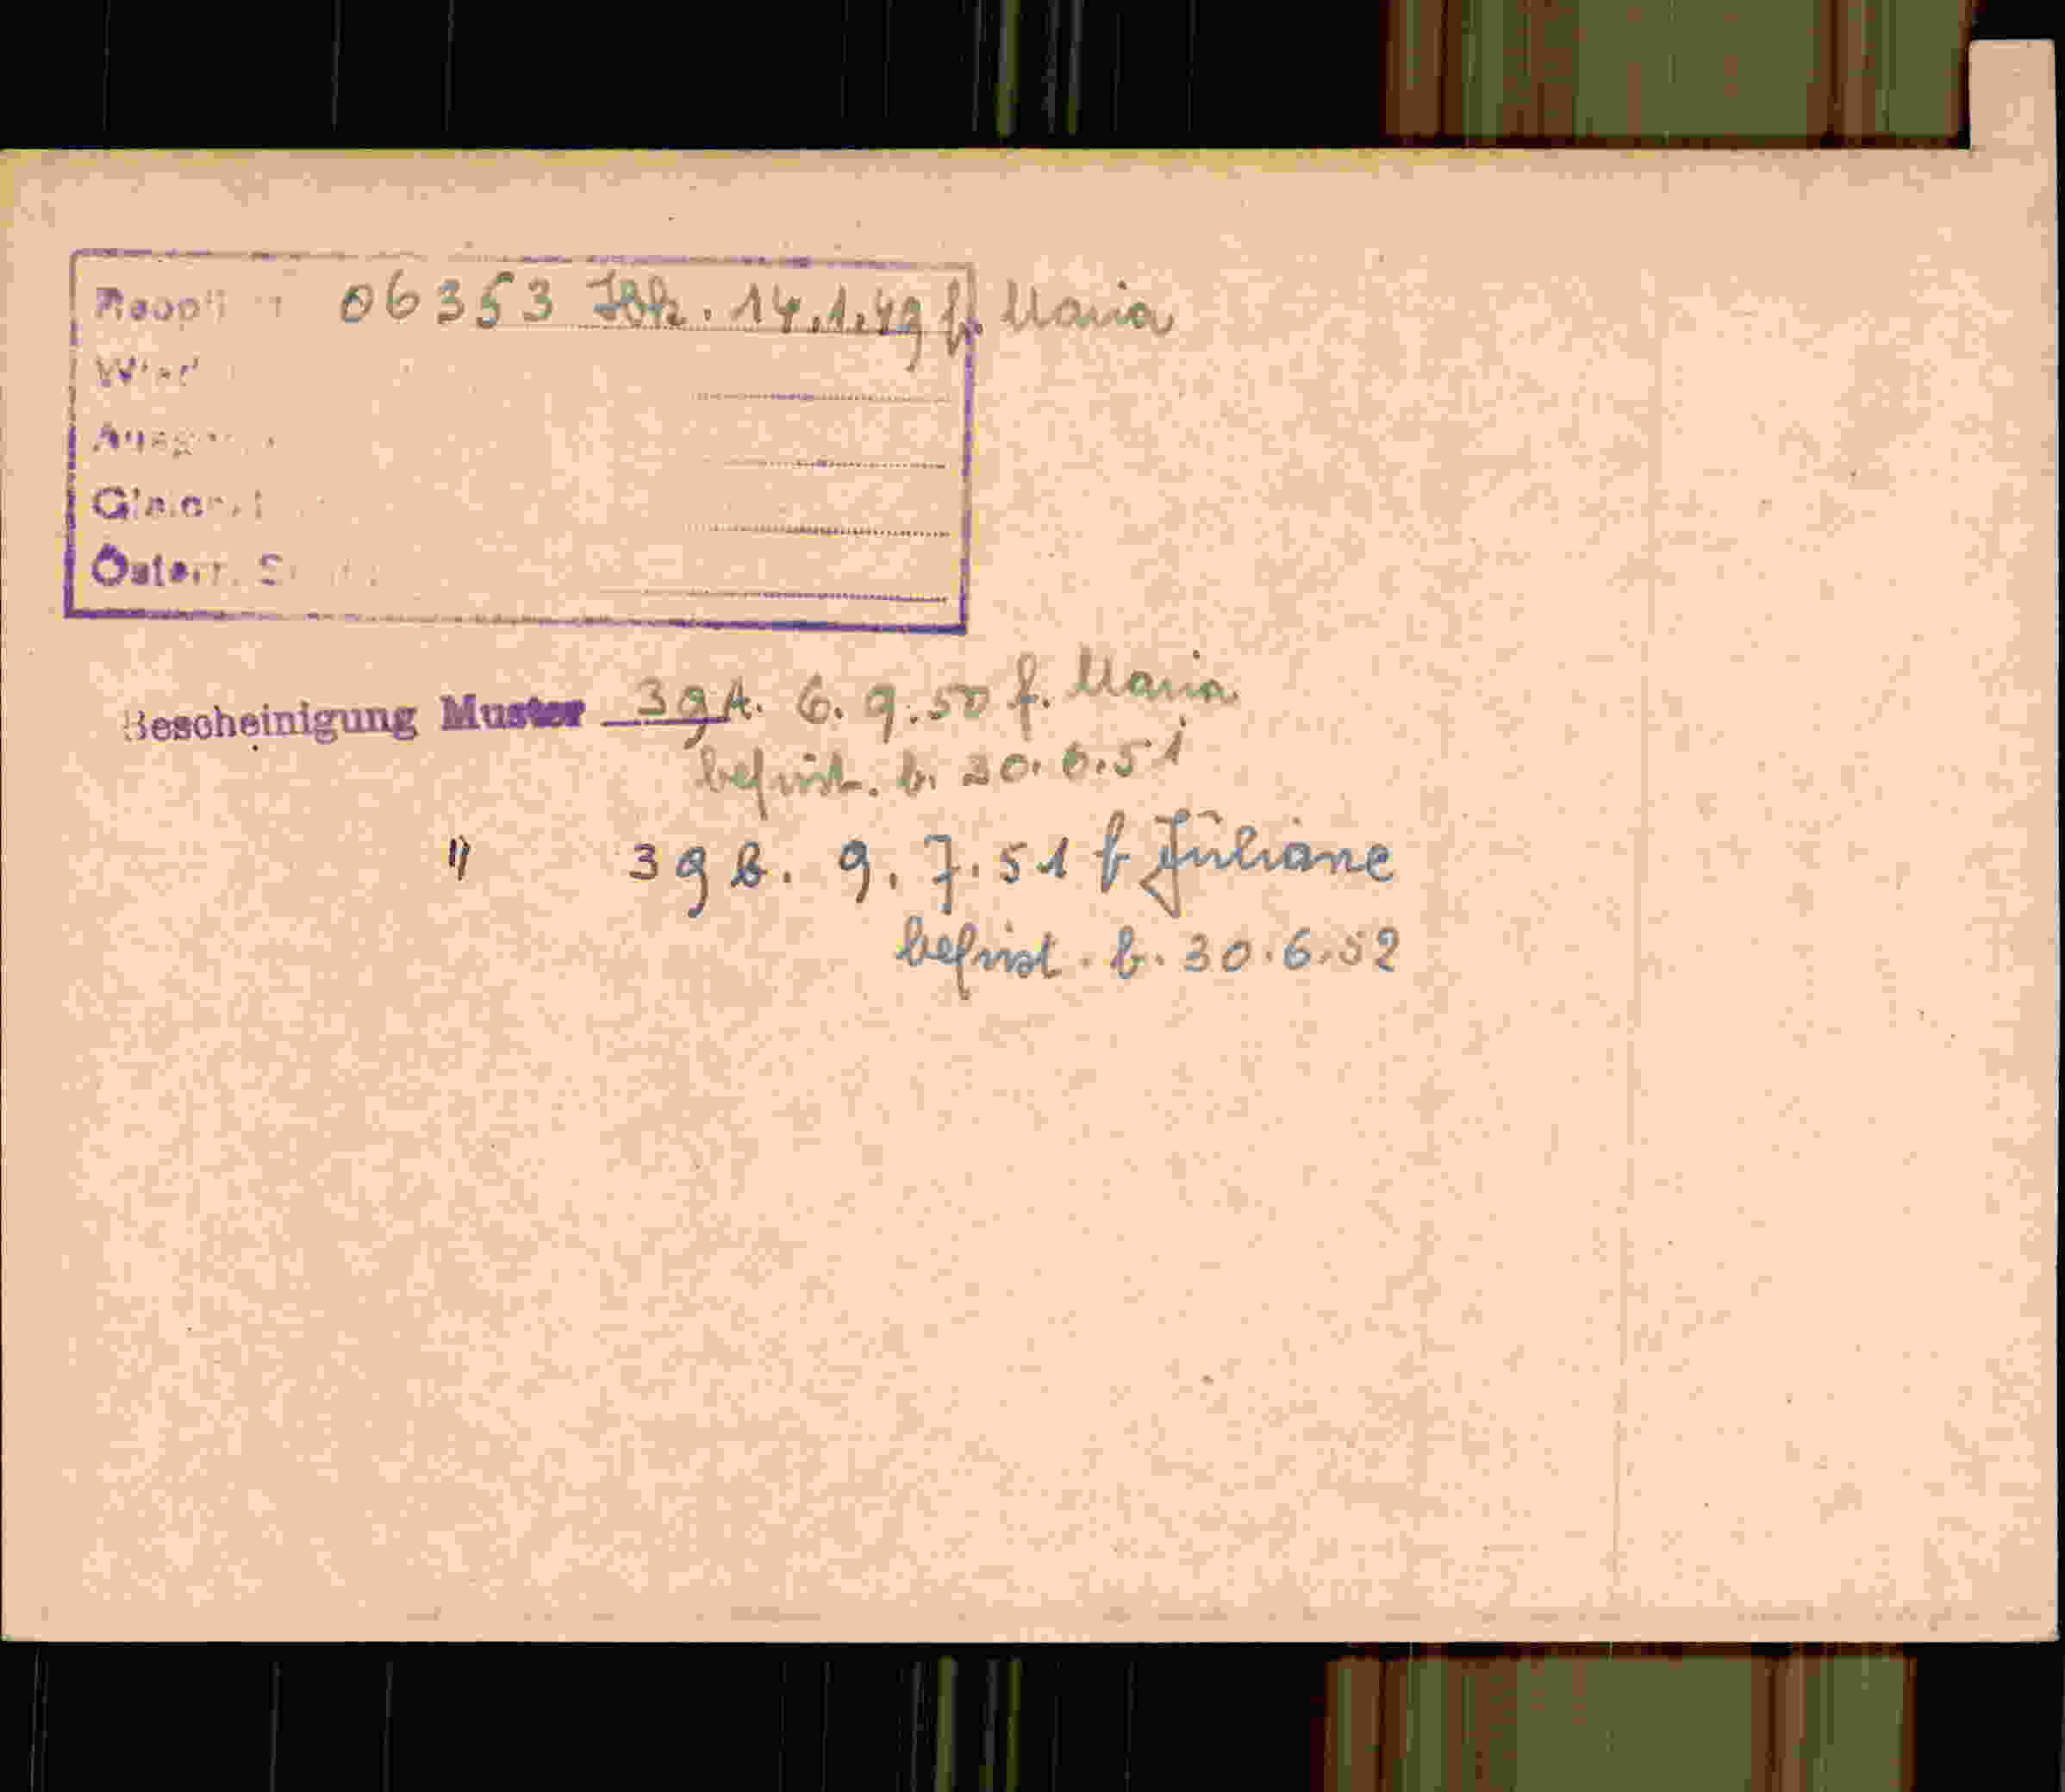 06353 Ibk. 14.1.49 f. Maria
Österr.
Bescheinigung Muster 39A. 6.9.50 f. Maria
befrist. b. 30.6.51
" 39 B. 9.7.51 f Juliane
befrist. b. 30.6.52